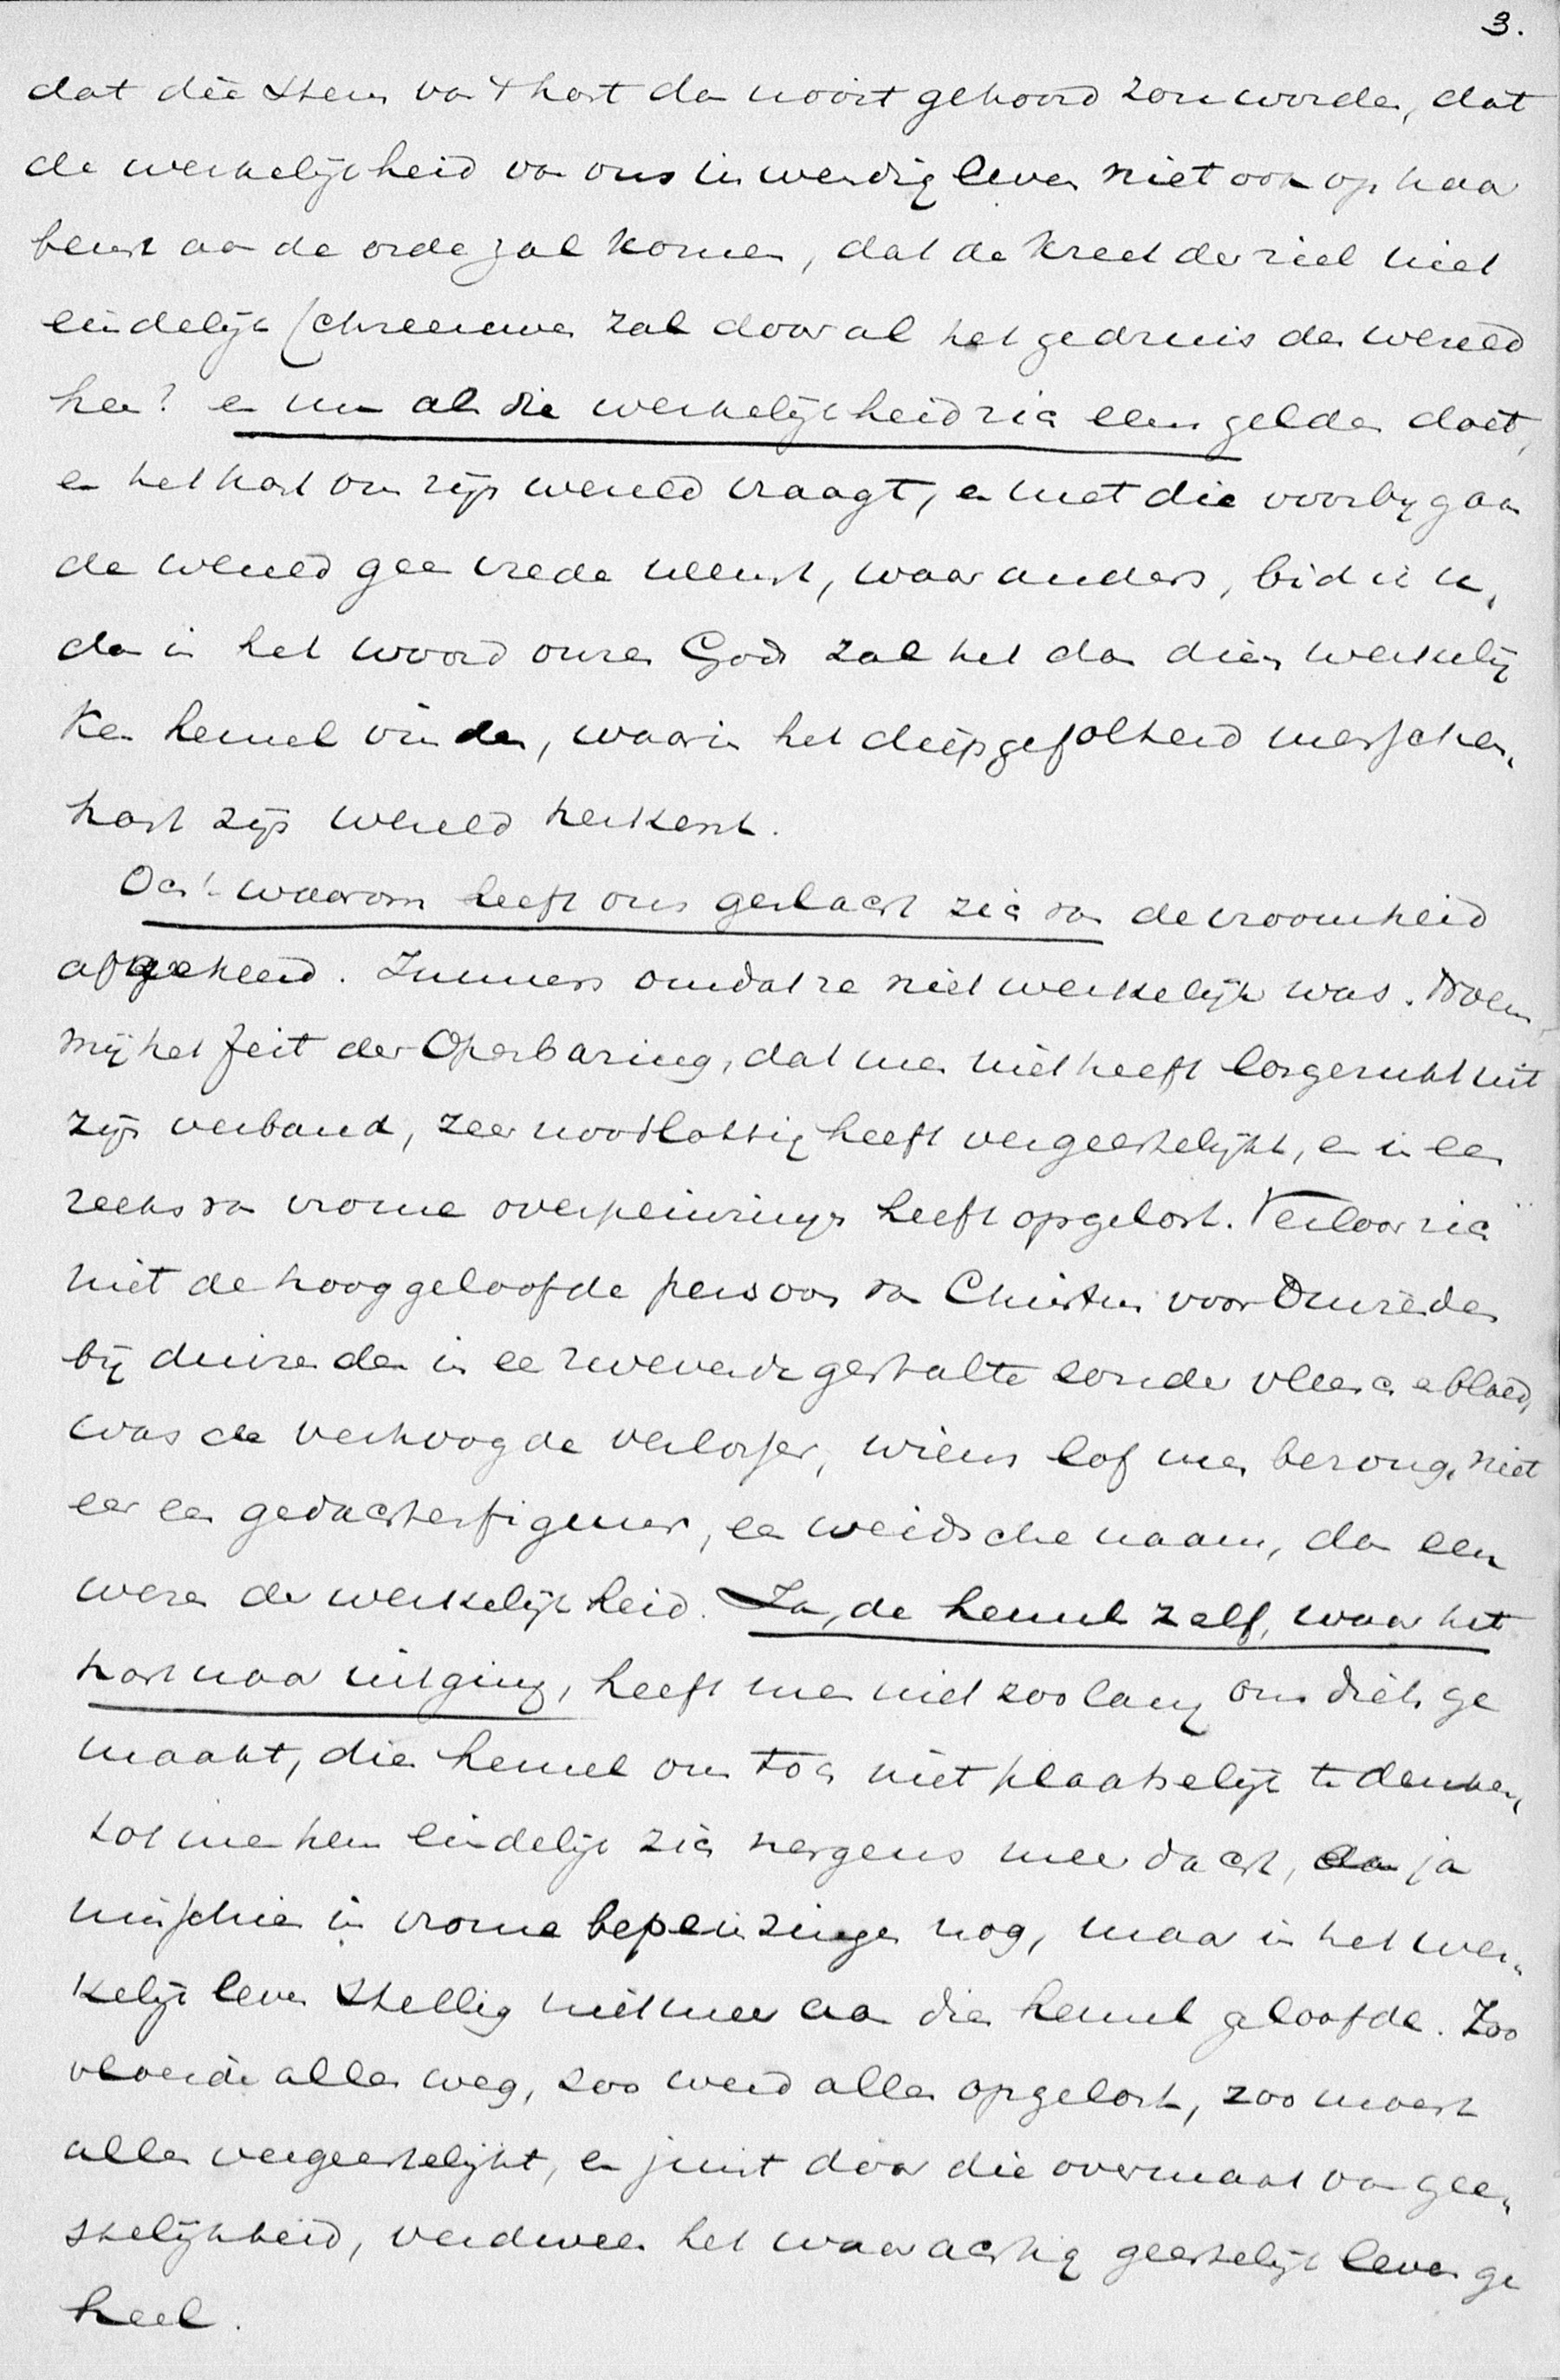 3.
dat die stem van 't hart dan nooit gehoord zou worden, dat
de werkelijkheid van ons inwendig leven niet ook op haar
beurt aan de orde zal komen, dat de kreet der ziel niet
eindelijk schreeuwen zal door al het gedruis der wereld
heen? en nu als die werkelijkheid zich eens gelden doet,
en het hart om zijn wereld vraagt, en met die voorbijgaan
de wereld geen vrede neemt, waar anders, bid ik u,
dan in het woord onzes Gods zal het dan dien werkelij
ken hemel vinden, waarin het diepgefolterd menschen-
hart zijn wereld herkent.
Och! waarom heeft ons geslacht zich van de vroomheid
afgekeerd. Immers omdat ze niet werkelijk was. Noem
mij het feit der Openbaring, dat men niet heeft losgerukt uit
zijn verband, zeer noodlottig heeft vergeestelijkt, en in een
reeks van vrome overpeinzingen heeft opgelost. Verloor zich
niet de hooggeloofde persoon van Christus voor duizenden
bij duizenden in een zwevende gestalte zonder vleesch en bloed,
was de verhoogde verlosser, wiens lof men bezong, niet
eer een gedachtenfiguur, een weidsche naam, dan een
wezen der werkelijkheid. Ja, de hemel zelf, waar het
hart naar uitging, heeft men niet zoolang ondicht ge
maakt, dien hemel om toch niet plaatselijk te denken,
tot men hem eindelijk zich nergens meer dacht, ja
misschien in vrome bepeinzingen nog, maar in het wer-
kelijk leven stellig niet meer aan dien hemel geloofde. Zoo
vloeide alles weg, zoo werd alles opgelost, zoo moest
alles vergeestelijkt, en juist door die overmaat van gee-
stelijkheid, verdween het waarachtig geestelijk leven ge
heel.